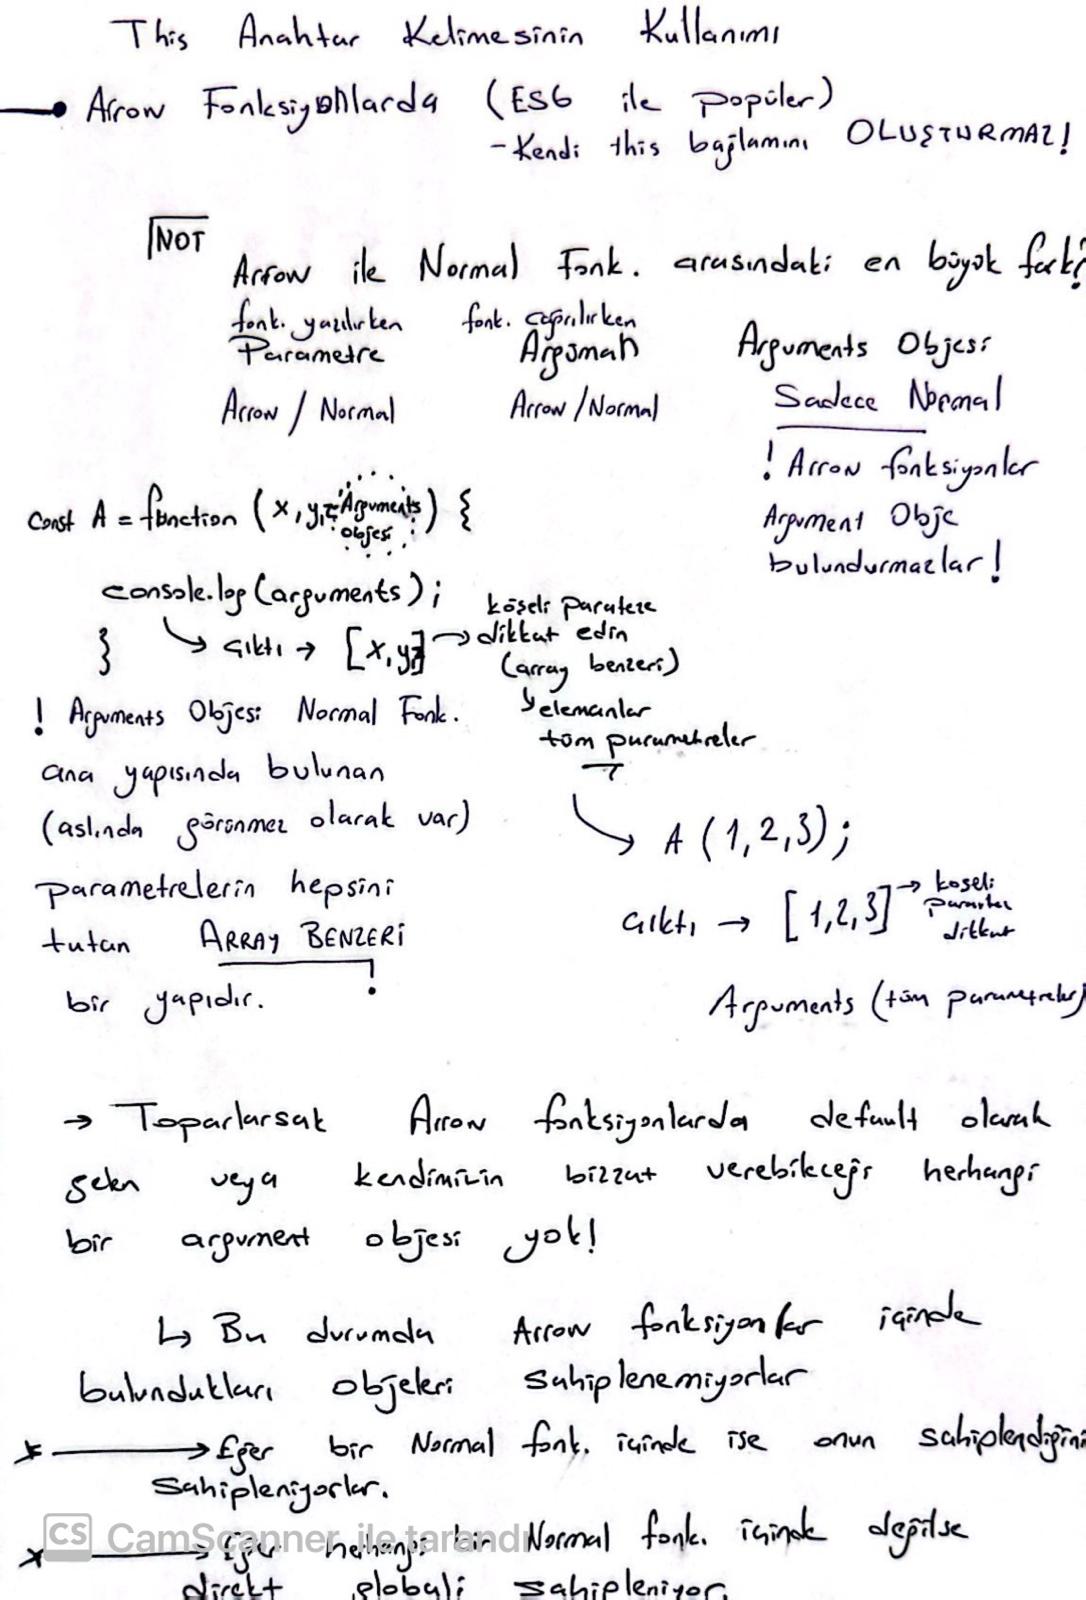 This Anahtar Kelimesinin Kullanımı
Arrow Fonksiyonlarda (ES6 ile popüler)
- Kendi this bağlamını OLUŞTURMAZ!
NOT
Arrow ile Normal Fonk. arasındaki en büyük fark?
fonk. yazılırken fonk. çağrılırken
Parametre Argüman Arguments Objesi
Arrow / Normal Arrow / Normal Sadece Normal
! Arrow fonksiyonlar
Argument Obje
bulundurmazlar!
const A = function (x, y, z Arguments objesi) {
console.log(arguments);
} çıktı → [x, y, z]
köşeli paranteze
dikkat edin
(array benzeri)
elemanlar
tüm parametreler
! Arguments Objesi Normal Fonk.
ana yapısında bulunan
(aslında görünmez olarak var)
parametrelerin hepsini
tutan ARRAY BENZERİ
bir yapıdır. !
→ A (1,2,3);
çıktı → [1,2,3] → köşeli
parantez
dikkat
Arguments (tüm parametreler)
→ Toparlarsak Arrow fonksiyonlarda default olarak
gelen veya kendimizin bizzat verebileceği herhangi
bir argument objesi yok!
↳ Bu durumda Arrow fonksiyonlar içinde
bulundukları objeleri sahiplenemiyorlar
* → Eğer bir Normal fonk. içinde ise onun sahiplendiğini
sahipleniyorlar.
* → Eğer herhangi bir Normal fonk. içinde değilse
direkt globali sahipleniyor.
CS CamScanner ile tarandı